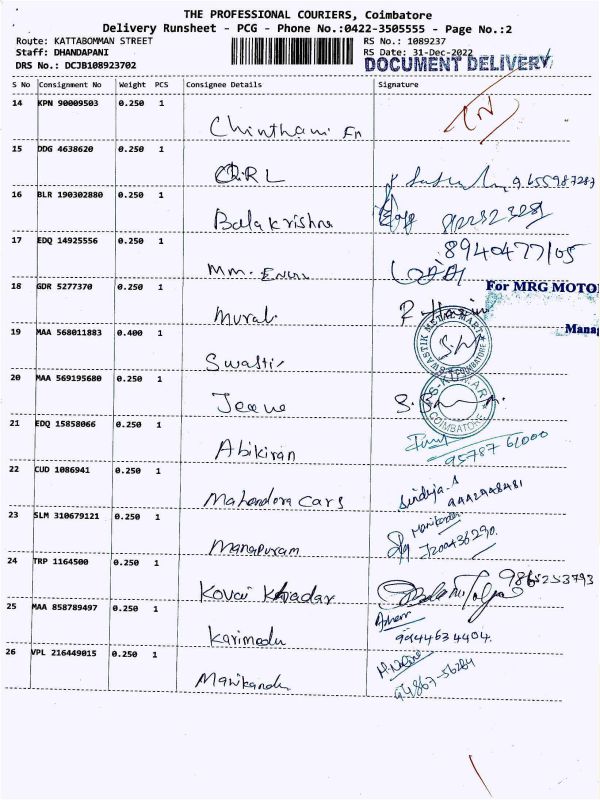 THE PROFESSIONAL COURIERS, Coimbatore
Delivery Runsheet - PCG - Phone No.:0422-3505555 - Page No.:2
Route: KATTABOMMAN STREET RS No.: 1089237
Staff: DHANDAPANI RS Date: 31-Dec-2022
DRS No.: DCJB108923702 DOCUMENT DELIVERY
S No Consignment No Weight PCS Consignee Details Signature
14 KPN 90009503 0.250 1
Chinthami En
15 DDG 4638620 0.250 1
QRL 9655987287
16 BLR 190302880 0.250 1
Balakrishna
17 EDQ 14925556 0.250 1
8940477105
MM. 
18 GDR 5277370 0.250 1 For MRG MOTO
Murali
19 MAA 568011883 0.400 1 Manag
Swasti
20 MAA 569195680 0.250 1
COIMBATORE
21 EDQ 15858066 0.250 1
Abikiran 95787 61000
22 CUD 1086941 0.250 1
Mahendora Cars
23 SLM 310679121 0.250 1
Manapuram
24 TRP 1164500 0.250 1
Kovai 9865253793
25 MAA 858789497 0.250 1
9944634404.
26 VPL 216449015 0.250 1
94867-56284